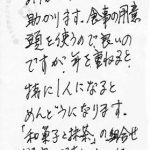 助かります。食事の用意
頭を使うので良いの
ですが、年を重ねると
特に1人になると
めんどうになります。
「和菓子と抹茶」の組合せ